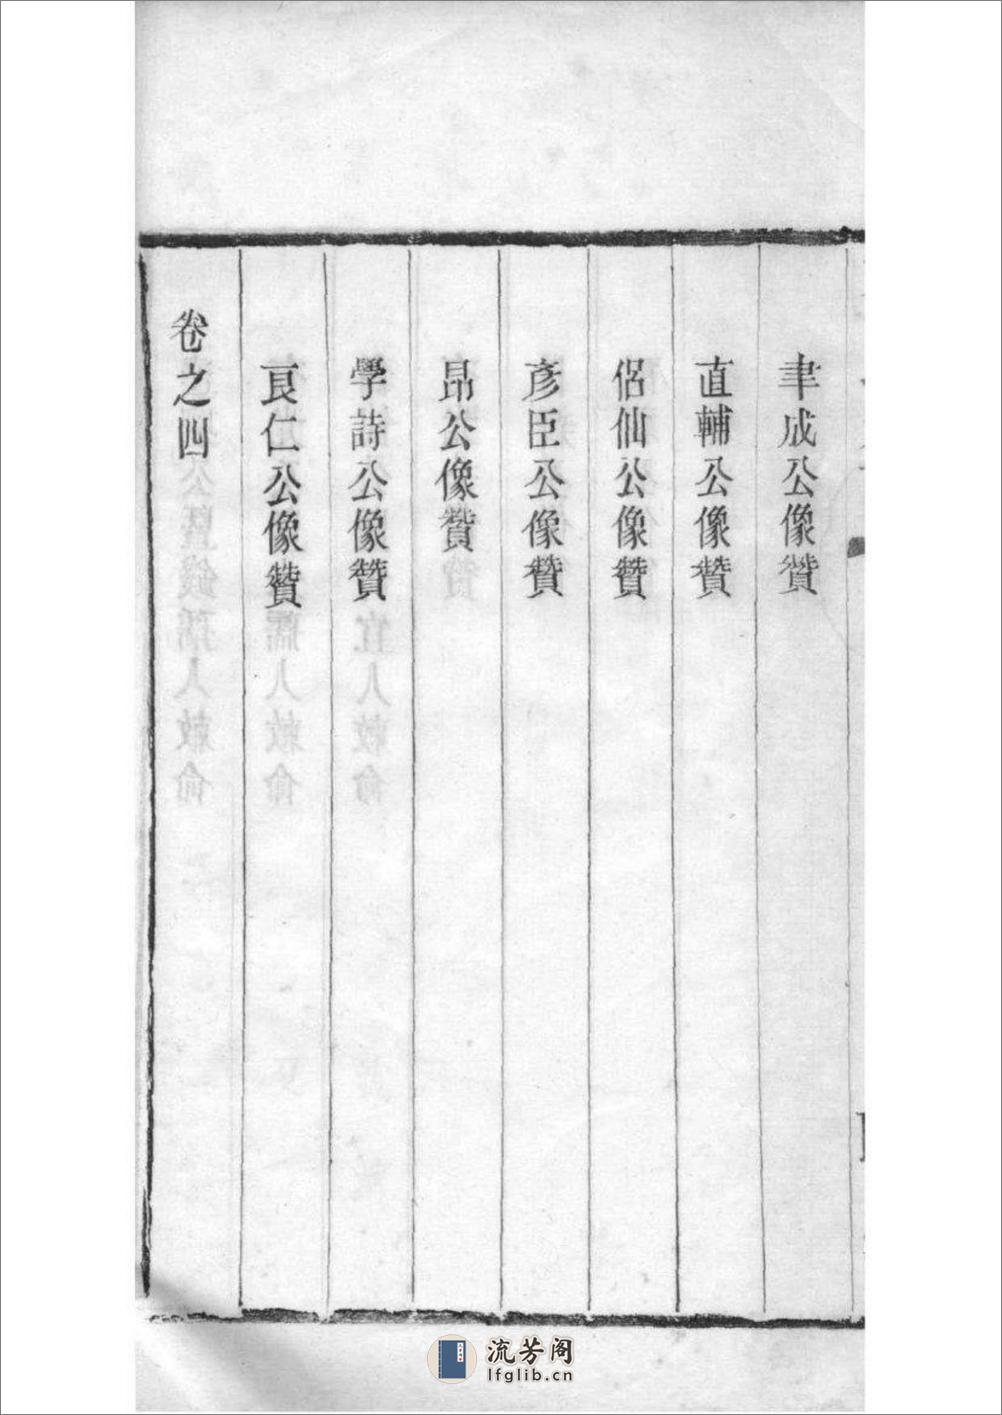 聿成公像贊
直輔公像贊
侶仙公像贊
彥臣公像贊
昂公像贊
學詩公像贊
良仁公像贊
卷之四
流芳阁
lfglib.cn